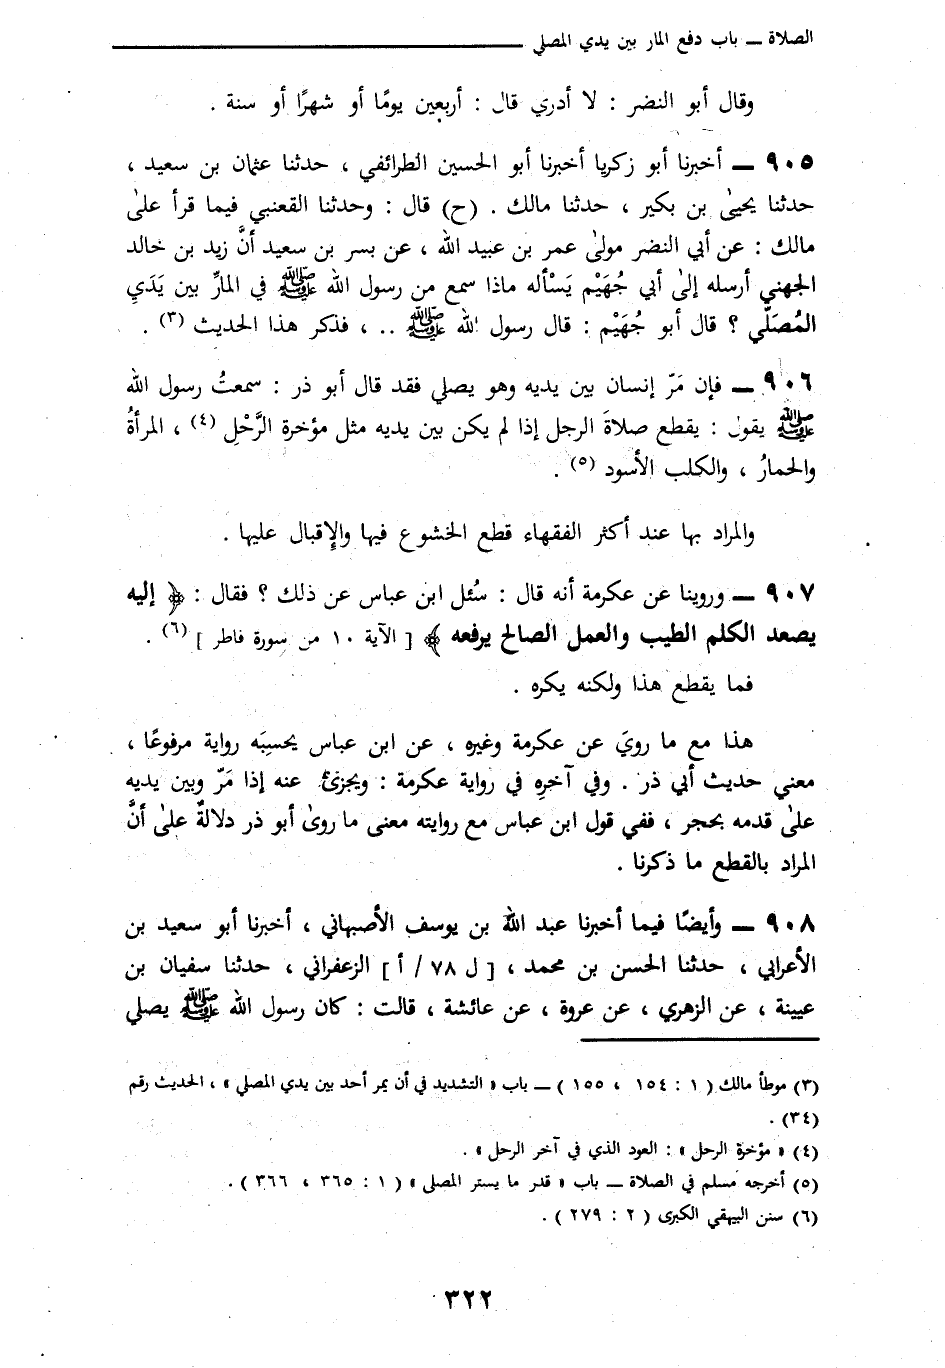 الصلاة ــ باب دفع المار بين يدي المصلي
وقال أبو النضر : لا أدري قال : أربعين يومًا أو شهرًا أو سنة .
٩٠٥ ــ أخبرنا أبو زكريا أخبرنا أبو الحسين الطرائفي ، حدثنا عثمان بن سعيد ،
حدثنا يحيىٰ بن بكير ، حدثنا مالك . (ح) قال : وحدثنا القعنبي فيما قرأ علىٰ
مالك : عن أبي النضر مولىٰ عمر بن عبيد الله ، عن بسر بن سعيد أنَّ زيد بن خالد
الجهني أرسله إلىٰ أبي جُهَيْم يَسْأله ماذا سمع من رسول الله ﷺ في المارِّ بين يَدَيِ
المُصَلِّي ؟ قال أبو جُهَيْم : قال رسول الله ﷺ .. ، فذكر هذا الحديث (٣) .
٩٠٦ ــ فإن مَرّ إنسان بين يديه وهو يصلي فقد قال أبو ذر : سمعتُ رسول الله
ﷺ يقول : يقطع صلاةَ الرجل إذا لم يكن بين يديه مثل مؤخرة الرَّحْلِ (٤) ، المرأةُ
والحمارُ ، والكلب الأسود (٥) .
والمراد بها عند أكثر الفقهاء قطع الخشوع فيها والإقبال عليها .
٩٠٧ ــ وروينا عن عكرمة أنه قال : سُئل ابن عباس عن ذلك ؟ فقال : ﴿ إليه
يصعد الكلم الطيب والعمل الصالح يرفعه ﴾ [ الآية ١٠ من سورة فاطر ] (٦) .
فما يقطع هذا ولكنه يكره .
هذا مع ما رويَ عن عكرمة وغيره ، عن ابن عباس يحسِبَه رواية مرفوعًا ،
معني حديث أبي ذر . وفي آخرِه في رواية عكرمة : ويجزئ عنه إذا مَرّ وبين يديه
علىٰ قدمه بحجر ، ففي قول ابن عباس مع روايته معنى ما روىٰ أبو ذر دلالةٌ علىٰ أنَّ
المراد بالقطع ما ذكرنا .
٩٠٨ ــ وأيضًا فيما أخبرنا عبد الله بن يوسف الأصبهاني ، أخبرنا أبو سعيد بن
الأعرابي ، حدثنا الحسن بن محمد ، [ ل ٧٨ / أ ] الزعفراني ، حدثنا سفيان بن
عيينة ، عن الزهري ، عن عروة ، عن عائشة ، قالت : كان رسول الله ﷺ يصلي
(٣) موطأ مالك ( ١ : ١٥٤ ، ١٥٥ ) ــ باب « التشديد في أن يمر أحد بين يدي المصلي » ، الحديث رقم
(٣٤) .
(٤) « مؤخرة الرحل » : العود الذي في آخر الرحل » .
(٥) أخرجه مسلم في الصلاة ــ باب « قدر ما يستر المصلى » ( ١ : ٣٦٥ ، ٣٦٦ ) .
(٦) سنن البيهقي الكبرى ( ٢ : ٢٧٩ ) .
٣٢٢